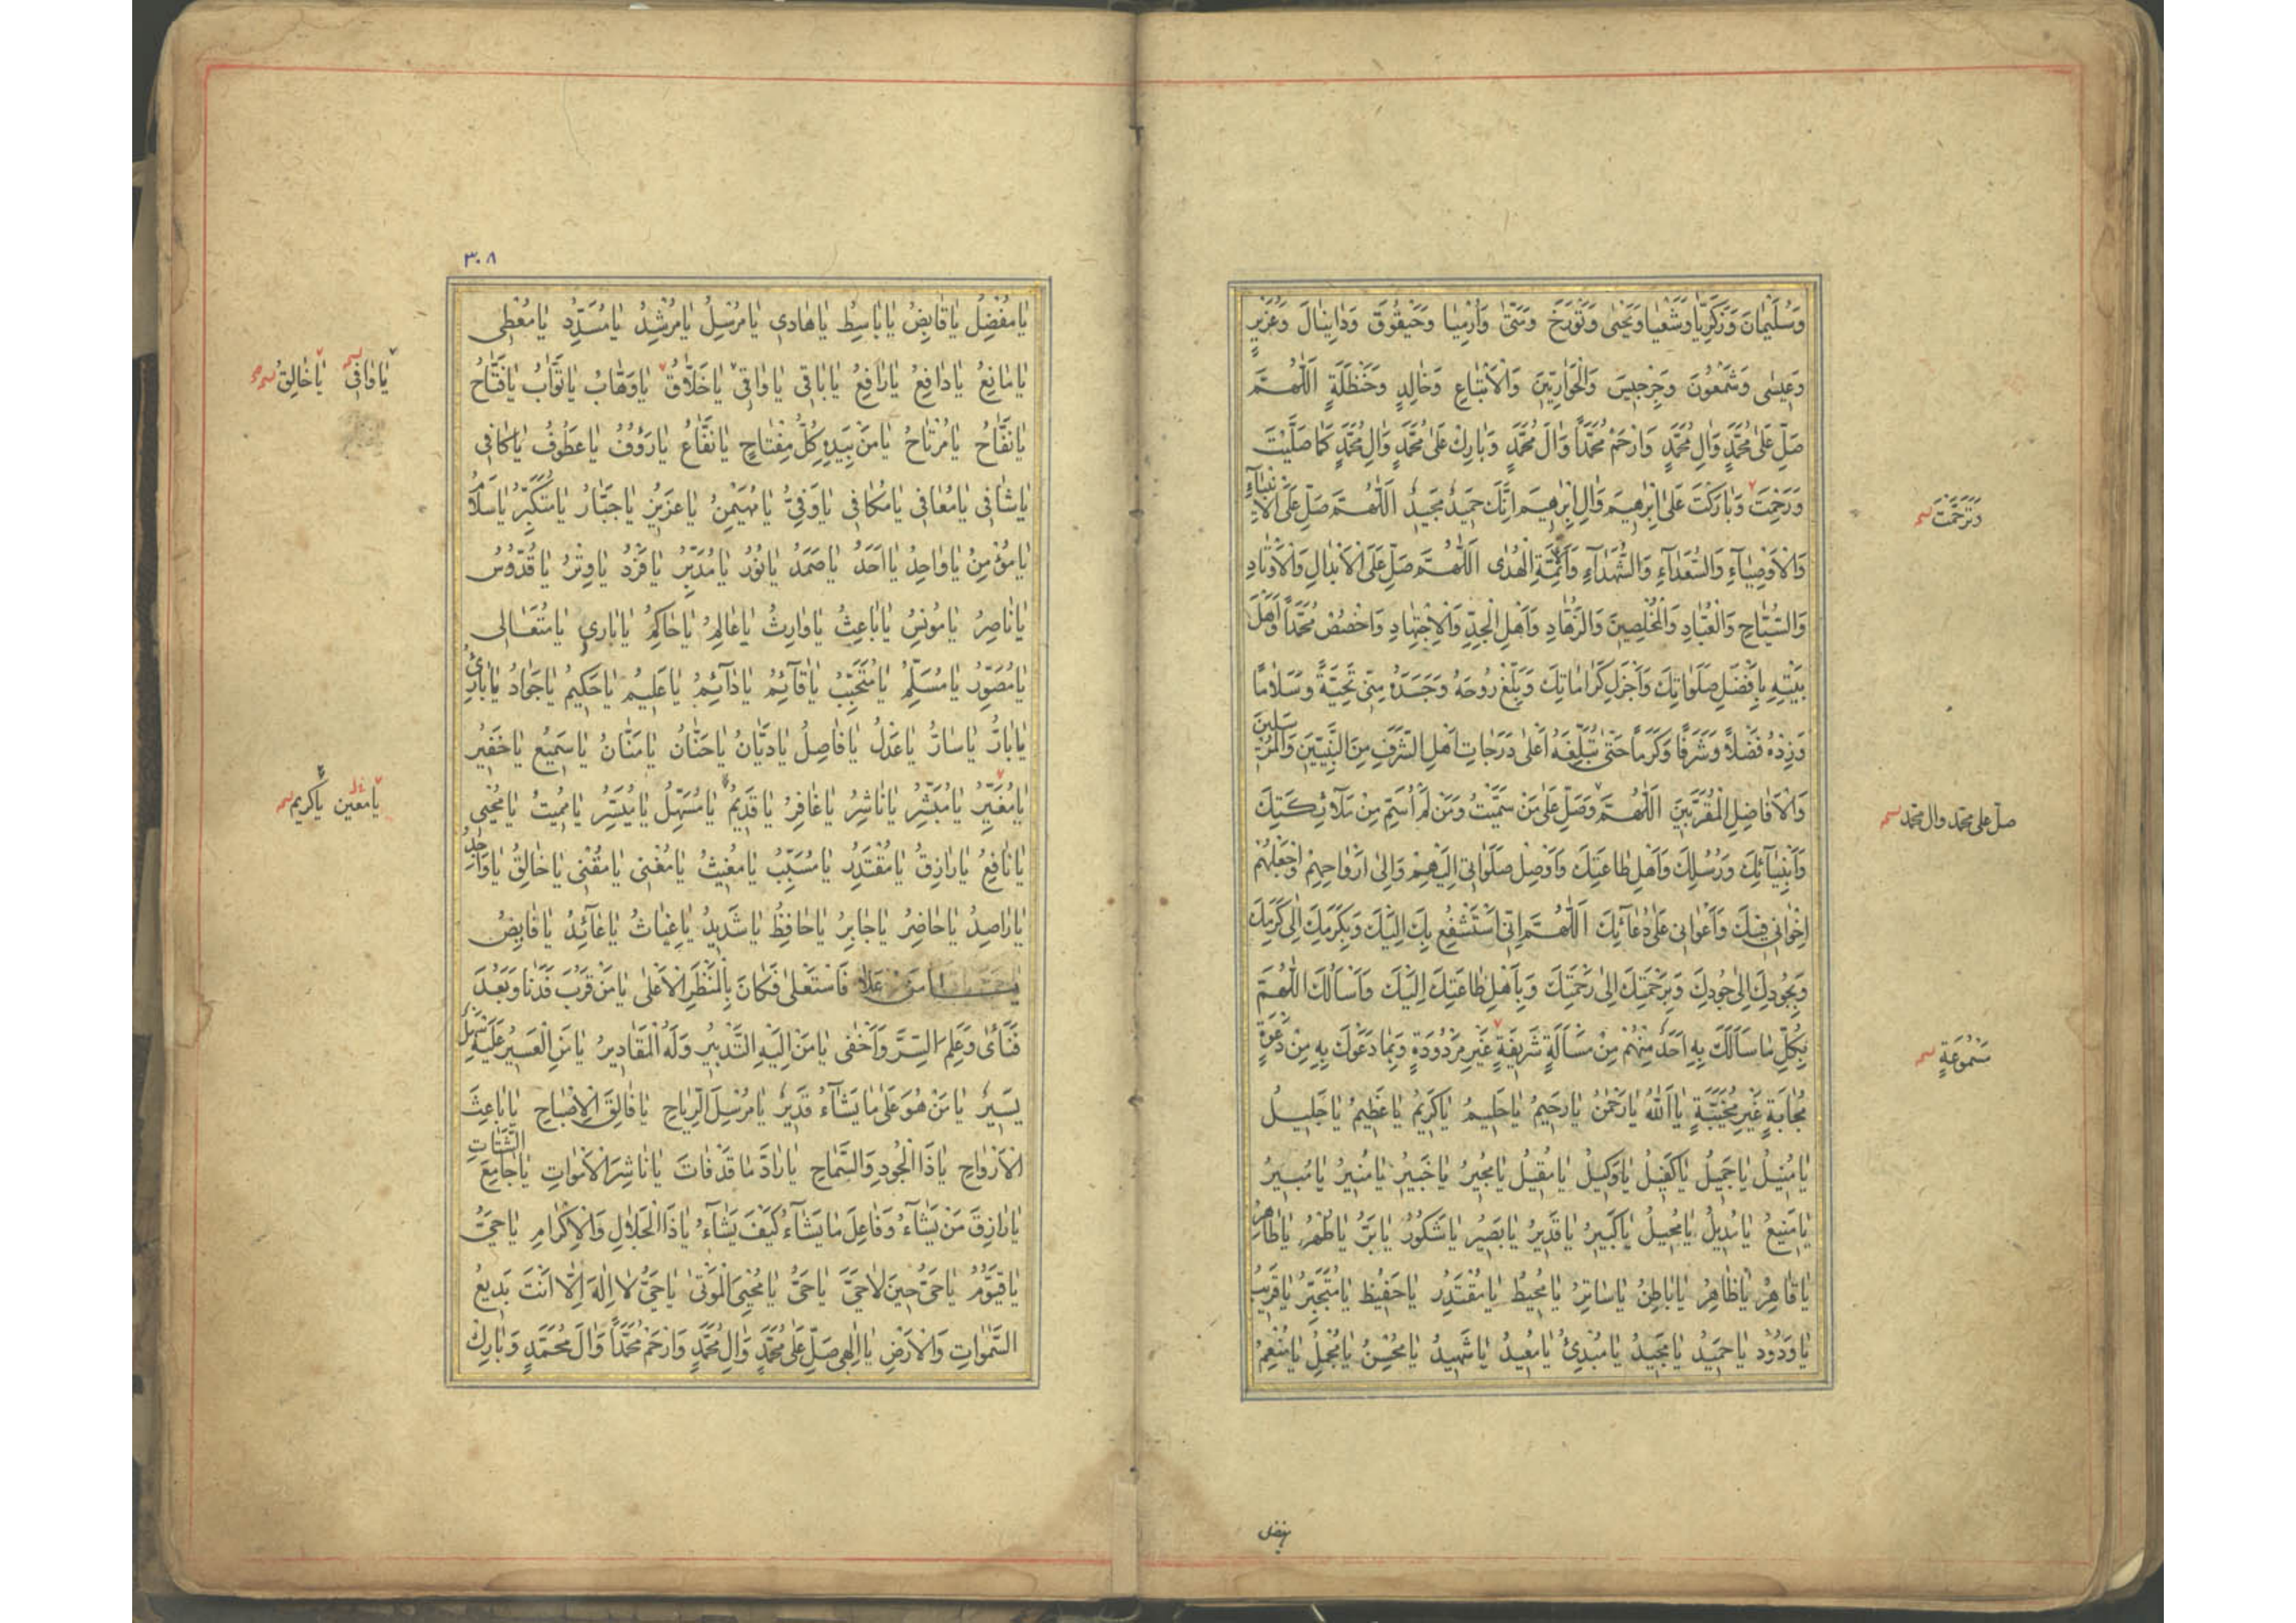 وَسُلَيْمَانَ وَزَكَرِيَّا وَشَعْيَا وَيَحْيٰى وَتُورَخَ وَمَتّٰى وَاِرْمِيَا وَحَيْقُوقَ وَدَانِيَالَ وَعُزَيْرٍ
وَعِيسٰى وَشَمْعُونَ وَجِرْجِيسَ وَالْحَوَارِيِّينَ وَالْاَتْبَاعِ وَخَالِدٍ وَحَنْظَلَةَ اَللّٰهُمَّ
صَلِّ عَلٰى مُحَمَّدٍ وَاٰلِ مُحَمَّدٍ وَارْحَمْ مُحَمَّدًا وَاٰلَ مُحَمَّدٍ وَبَارِكْ عَلٰى مُحَمَّدٍ وَاٰلِ مُحَمَّدٍ كَمَا صَلَّيْتَ
وَرَحِمْتَ وَبَارَكْتَ عَلٰى اِبْرٰهِيمَ وَاٰلِ اِبْرٰهِيمَ اِنَّكَ حَمِيدٌ مَجِيدٌ اَللّٰهُمَّ صَلِّ عَلَى الْاَنْبِيَآءِ
وَتَرَحَّمْتَ
وَالْاَوْصِيَآءِ وَالسُّعَدَآءِ وَالشُّهَدَآءِ وَاَئِمَّةِ الْهُدٰى اَللّٰهُمَّ صَلِّ عَلَى الْاَبْدَالِ وَالْاَوْتَادِ
وَالسُّيَّاحِ وَالْعُبَّادِ وَالْمُخْلِصِينَ وَالزُّهَّادِ وَاَهْلِ الْجِدِّ وَالْاِجْتِهَادِ وَاخْصُصْ مُحَمَّدًا وَاَهْلَ
بَيْتِهِ بِاَفْضَلِ صَلَوَاتِكَ وَاَجْزَلِ كَرَامَاتِكَ وَبَلِّغْ رُوحَهُ وَجَسَدَهُ مِنِّي تَحِيَّةً وَسَلَامًا
وَزِدْهُ فَضْلًا وَشَرَفًا وَكَرَمًا حَتّٰى تُبَلِّغَهُ اَعْلٰى دَرَجَاتِ اَهْلِ الشَّرَفِ مِنَ النَّبِيِّينَ وَالْمُرْسَلِينَ
وَالْاَفَاضِلِ الْمُقَرَّبِينَ اَللّٰهُمَّ وَصَلِّ عَلٰى مَنْ سَمَّيْتُ وَمَنْ لَمْ اُسَمِّ مِنْ مَلَآئِكَتِكَ
صل على محمد وال محمد
وَاَنْبِيَآئِكَ وَرُسُلِكَ وَاَهْلِ طَاعَتِكَ وَاَوْصِلْ صَلَوَاتِي اِلَيْهِمْ وَاِلٰى اَرْوَاحِهِمْ وَاجْعَلْهُمْ
اِخْوَانِي فِيكَ وَاَعْوَانِي عَلٰى دُعَآئِكَ اَللّٰهُمَّ اِنِّي اَسْتَشْفِعُ بِكَ اِلَيْكَ وَبِكَرَمِكَ اِلٰى كَرَمِكَ
وَبِجُودِكَ اِلٰى جُودِكَ وَبِرَحْمَتِكَ اِلٰى رَحْمَتِكَ وَبِاَهْلِ طَاعَتِكَ اِلَيْكَ وَاَسْاَلُكَ اَللّٰهُمَّ
بِكُلِّ مَا سَاَلَكَ بِهِ اَحَدٌ مِنْهُمْ مِنْ مَسْاَلَةٍ شَرِيفَةٍ غَيْرِ مَرْدُودَةٍ وَبِمَا دَعَوْكَ بِهِ مِنْ دَعْوَةٍ
مَسْمُوعَةٍ
مُجَابَةٍ غَيْرِ مُخَيَّبَةٍ يَا اَللّٰهُ يَا رَحْمٰنُ يَا رَحِيمُ يَا حَلِيمُ يَا كَرِيمُ يَا عَظِيمُ يَا جَلِيلُ
يَا مُنِيلُ يَا جَمِيلُ يَا كَفِيلُ يَا وَكِيلُ يَا مُقِيلُ يَا مُجِيرُ يَا خَبِيرُ يَا مُنِيرُ يَا مُبِيرُ
يَا مَنِيعُ يَا مُدِيلُ يَا مُحِيلُ يَا كَبِيرُ يَا قَدِيرُ يَا بَصِيرُ يَا شَكُورُ يَا بَرُّ يَا طُهْرُ يَا طَاهِرُ
يَا قَاهِرُ يَا ظَاهِرُ يَا بَاطِنُ يَا سَاتِرُ يَا مُحِيطُ يَا مُقْتَدِرُ يَا حَفِيظُ يَا مُتَجَبِّرُ يَا قَرِيبُ
يَا وَدُودُ يَا حَمِيدُ يَا مَجِيدُ يَا مُبْدِئُ يَا مُعِيدُ يَا شَهِيدُ يَا مُحْسِنُ يَا مُجْمِلُ يَا مُنْعِمُ
يا مفضل
٣٠٨
يَا مُفْضِلُ يَا قَابِضُ يَا بَاسِطُ يَا هَادِي يَا مُرْسِلُ يَا مُرْشِدُ يَا مُسَدِّدُ يَا مُعْطِي
يَا مَانِعُ يَا دَافِعُ يَا رَافِعُ يَا بَاقِي يَا وَاقِي يَا خَلَّاقُ يَا وَهَّابُ يَا تَوَّابُ يَا فَتَّاحُ
يَا وَافِي يَا خَالِقُ
يَا نَفَّاحُ يَا مُرْتَاحُ يَا مَنْ بِيَدِهِ كُلُّ مِفْتَاحٍ يَا نَفَّاعُ يَا رَؤُفُ يَا عَطُوفُ يَا كَافِي
يَا شَافِي يَا مُعَافِي يَا مُكَافِي يَا وَفِيُّ يَا مُهَيْمِنُ يَا عَزِيزُ يَا جَبَّارُ يَا مُتَكَبِّرُ يَا سَلَامُ
يَا مُؤْمِنُ يَا وَاحِدُ يَا اَحَدُ يَا صَمَدُ يَا نُورُ يَا مُدَبِّرُ يَا فَرْدُ يَا وِتْرُ يَا قُدُّوسُ
يَا نَاصِرُ يَا مُونِسُ يَا بَاعِثُ يَا وَارِثُ يَا عَالِمُ يَا حَاكِمُ يَا بَارِي يَا مُتَعَالِي
يَا مُصَوِّرُ يَا مُسَلِّمُ يَا مُتَحَبِّبُ يَا قَآئِمُ يَا دَآئِمُ يَا عَلِيمُ يَا حَكِيمُ يَا جَوَادُ يَا بَارِئُ
يَا بَارُّ يَا سَارُّ يَا عَدْلُ يَا فَاصِلُ يَا دَيَّانُ يَا حَنَّانُ يَا مَنَّانُ يَا سَمِيعُ يَا خَفِيرُ
يَا مُغَيِّرُ يَا مُبَشِّرُ يَا نَاشِرُ يَا غَافِرُ يَا قَدِيمُ يَا مُسَهِّلُ يَا مُيَسِّرُ يَا مُمِيتُ يَا مُحْيِي
يا معين يا كريم
يَا نَافِعُ يَا رَازِقُ يَا مُقْتَدِرُ يَا مُسَبِّبُ يَا مُغِيثُ يَا مُغْنِي يَا مُقْنِي يَا خَالِقُ يَا وَاحِدُ
يَا رَاصِدُ يَا حَاضِرُ يَا جَابِرُ يَا حَافِظُ يَا شَدِيدُ يَا غِيَاثُ يَا عَآئِدُ يَا قَابِضُ
يَا مَنْ عَلَا فَاسْتَعْلٰى فَكَانَ بِالْمَنْظَرِ الْاَعْلٰى يَا مَنْ قَرُبَ فَدَنَا وَبَعُدَ
فَنَاٰى وَعَلِمَ السِّرَّ وَاَخْفٰى يَا مَنْ اِلَيْهِ التَّدْبِيرُ وَلَهُ الْمَقَادِيرُ يَا مَنِ الْعَسِيرُ عَلَيْهِ سَهْلٌ
يَسِيرٌ يَا مَنْ هُوَ عَلٰى مَا يَشَآءُ قَدِيرٌ يَا مُرْسِلَ الرِّيَاحِ يَا فَالِقَ الْاِصْبَاحِ يَا بَاعِثَ
الْاَرْوَاحِ يَا ذَا الْجُودِ وَالسَّمَاحِ يَا رَادَّ مَا قَدْ فَاتَ يَا نَاشِرَ الْاَمْوَاتِ يَا جَامِعَ الشَّتَاتِ
يَا رَازِقَ مَنْ يَشَآءُ وَفَاعِلَ مَا يَشَآءُ كَيْفَ يَشَآءُ يَا ذَا الْجَلَالِ وَالْاِكْرَامِ يَا حَيُّ
يَا قَيُّومُ يَا حَيُّ حِينَ لَا حَيَّ يَا حَيُّ يَا مُحْيِيَ الْمَوْتٰى يَا حَيُّ لَا اِلٰهَ اِلَّا اَنْتَ بَدِيعُ
السَّمٰوَاتِ وَالْاَرْضِ يَا اِلٰهِي صَلِّ عَلٰى مُحَمَّدٍ وَاٰلِ مُحَمَّدٍ وَارْحَمْ مُحَمَّدًا وَاٰلَ مُحَمَّدٍ وَبَارِكْ